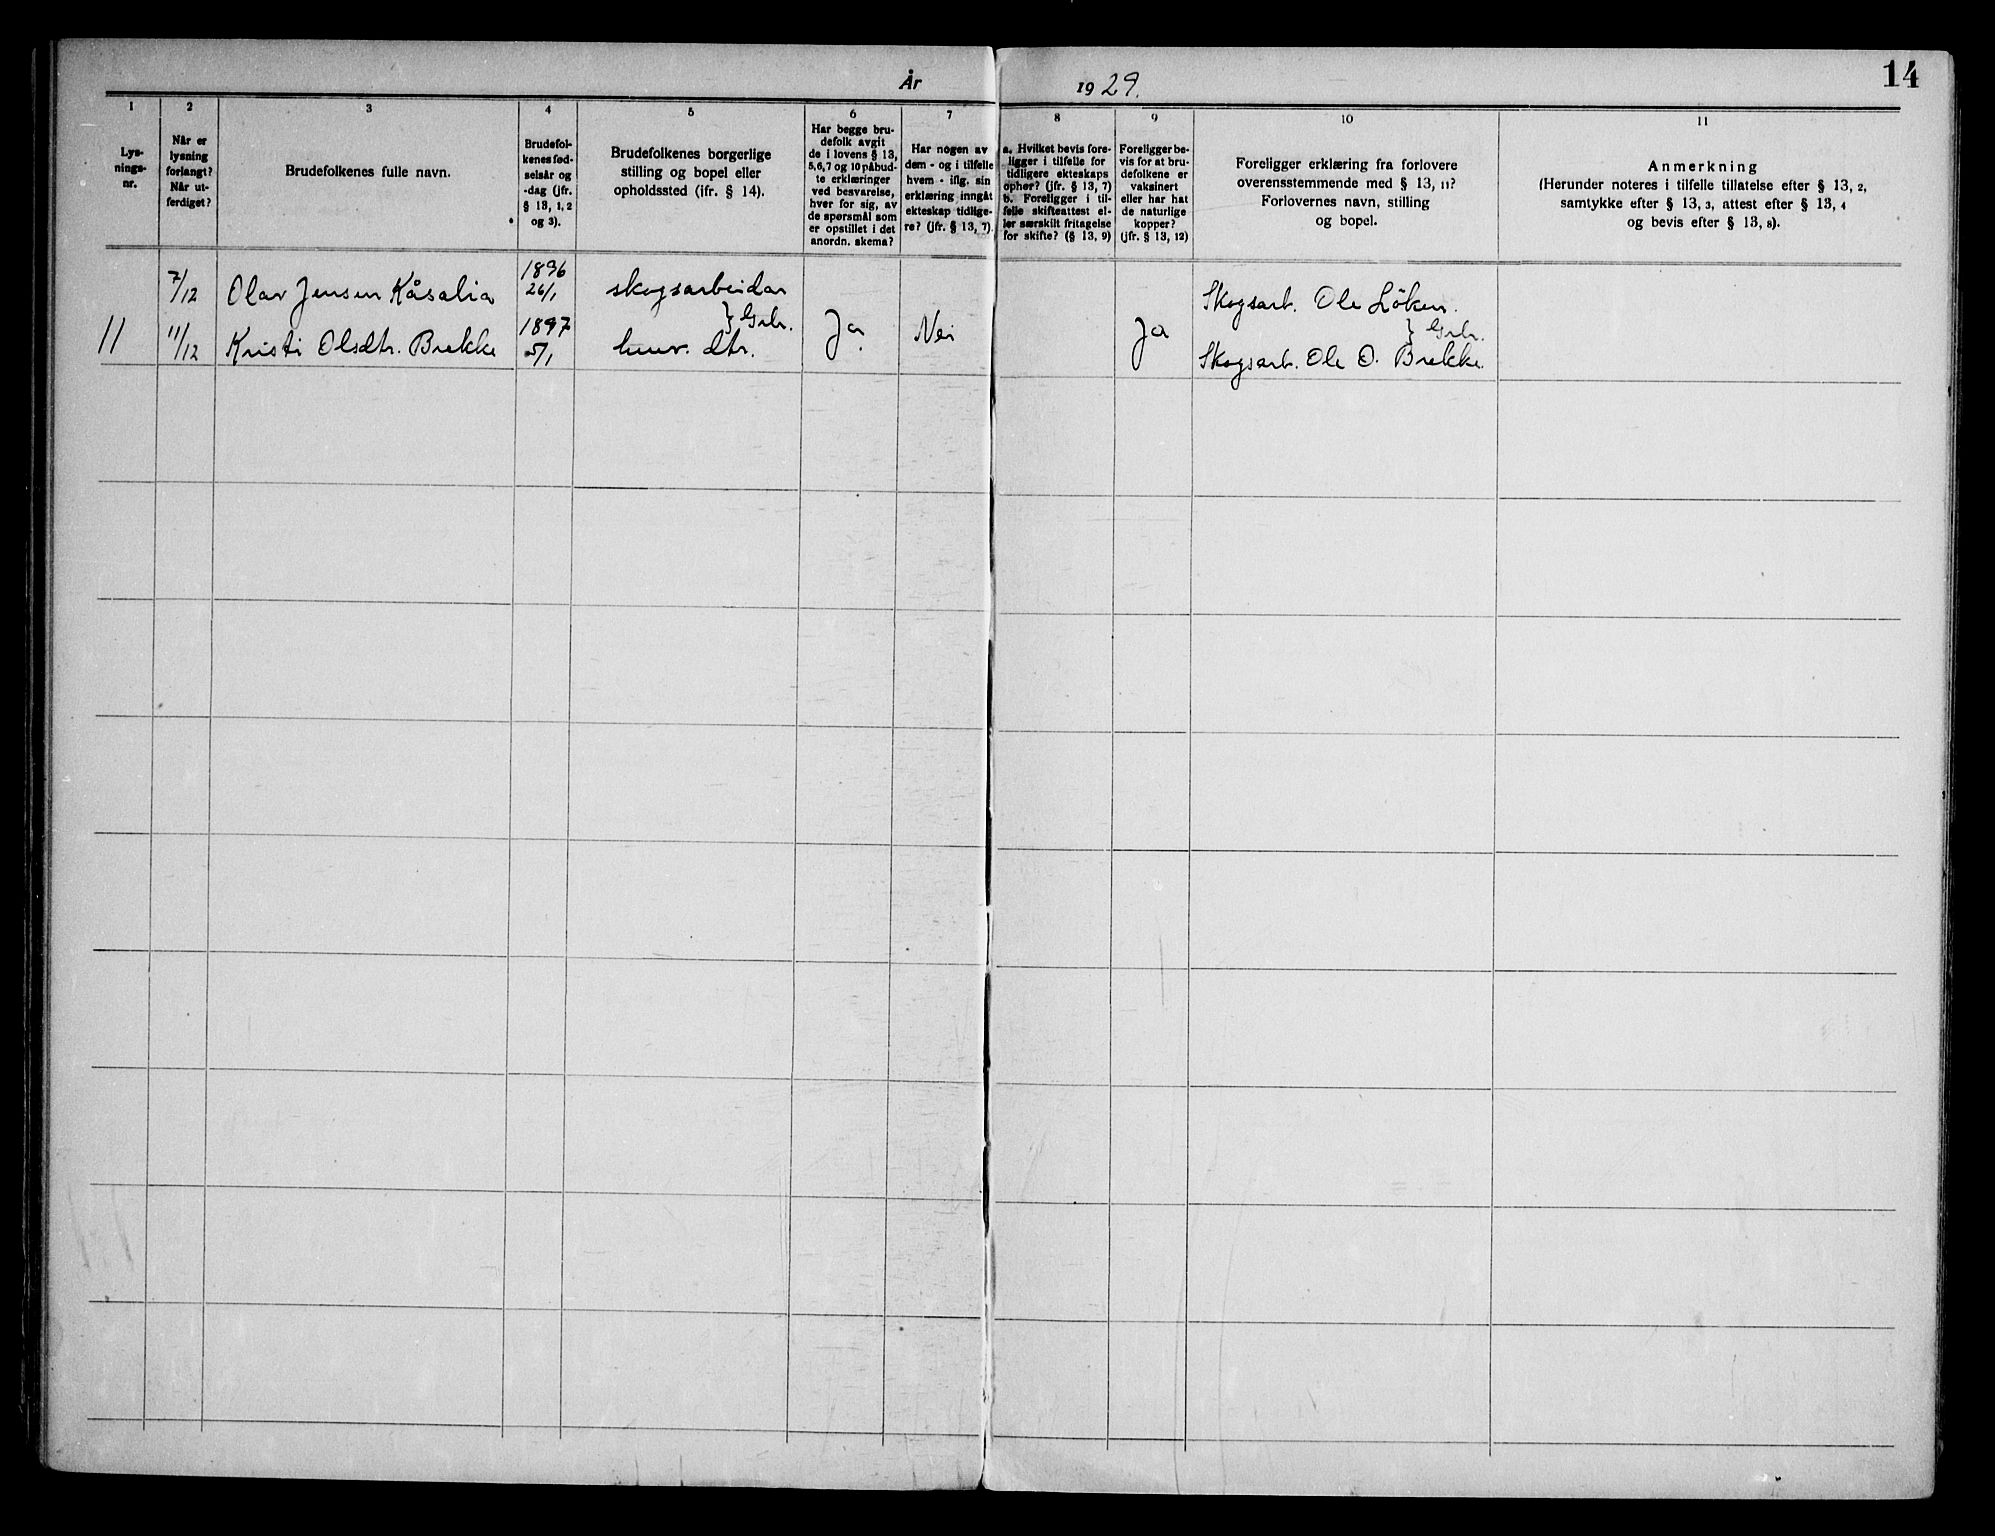 År 1929.
14
1 2 3 4 5 6 7 8 9 10 11
Lys-
nings-
nr.
Når er
lysning
forlangt?
Når ut-
ferdiget?
Brudefolkenes fulle navn.
Brudefol-
kenes fød-
selsår og
-dag (jfr.
§ 13, 1, 2
og 3).
Brudefolkenes borgerlige
stilling og bopel eller
opholdssted (jfr. § 14).
Har begge bru-
defolk avgit
de i lovens § 13,
5,6,7 og 10 påbud-
te erklæringer
ved besvarelse,
hver for sig, av
de spørsmål som
er opstillet i det
anordn. skema?
Har nogen av
dem - og i tilfelle
hvem - iflg. sin
erklæring inngåt
ekteskap tidlige-
re? (jfr. § 13, 7).
a. Hvilket bevis fore-
ligger i tilfelle for
tidligere ekteskaps
ophør? (jfr. § 13, 7)
b. Foreligger i til-
felle skifteattest el-
ler særskilt fritagelse
for skifte? (§ 13, 9)
Foreligger be-
vis for at bru-
defolkene er
vaksinert
eller har hat
de naturlige
kopper?
(jfr. § 13, 12)
Foreligger erklæring fra forlovere
overensstemmende med § 13, 11?
Forlovernes navn, stilling
og bopel.
Anmerkning
(Herunder noteres i tilfelle tillatelse efter § 13, 2,
samtykke efter § 13, 3, attest efter § 13, 4
og bevis efter § 13, 8).
1896
7/12 Olav Jensen Kåsalia 26/1 skogsarbeidar Skogsart. Ole Löken.
1897 } Grbr. } Grbr.
11 11/12 Kristi Olsdtr. Brekke 5/1 husv. dtr. Ja Nei Ja
Skogsarb. Ole O. Brekke.